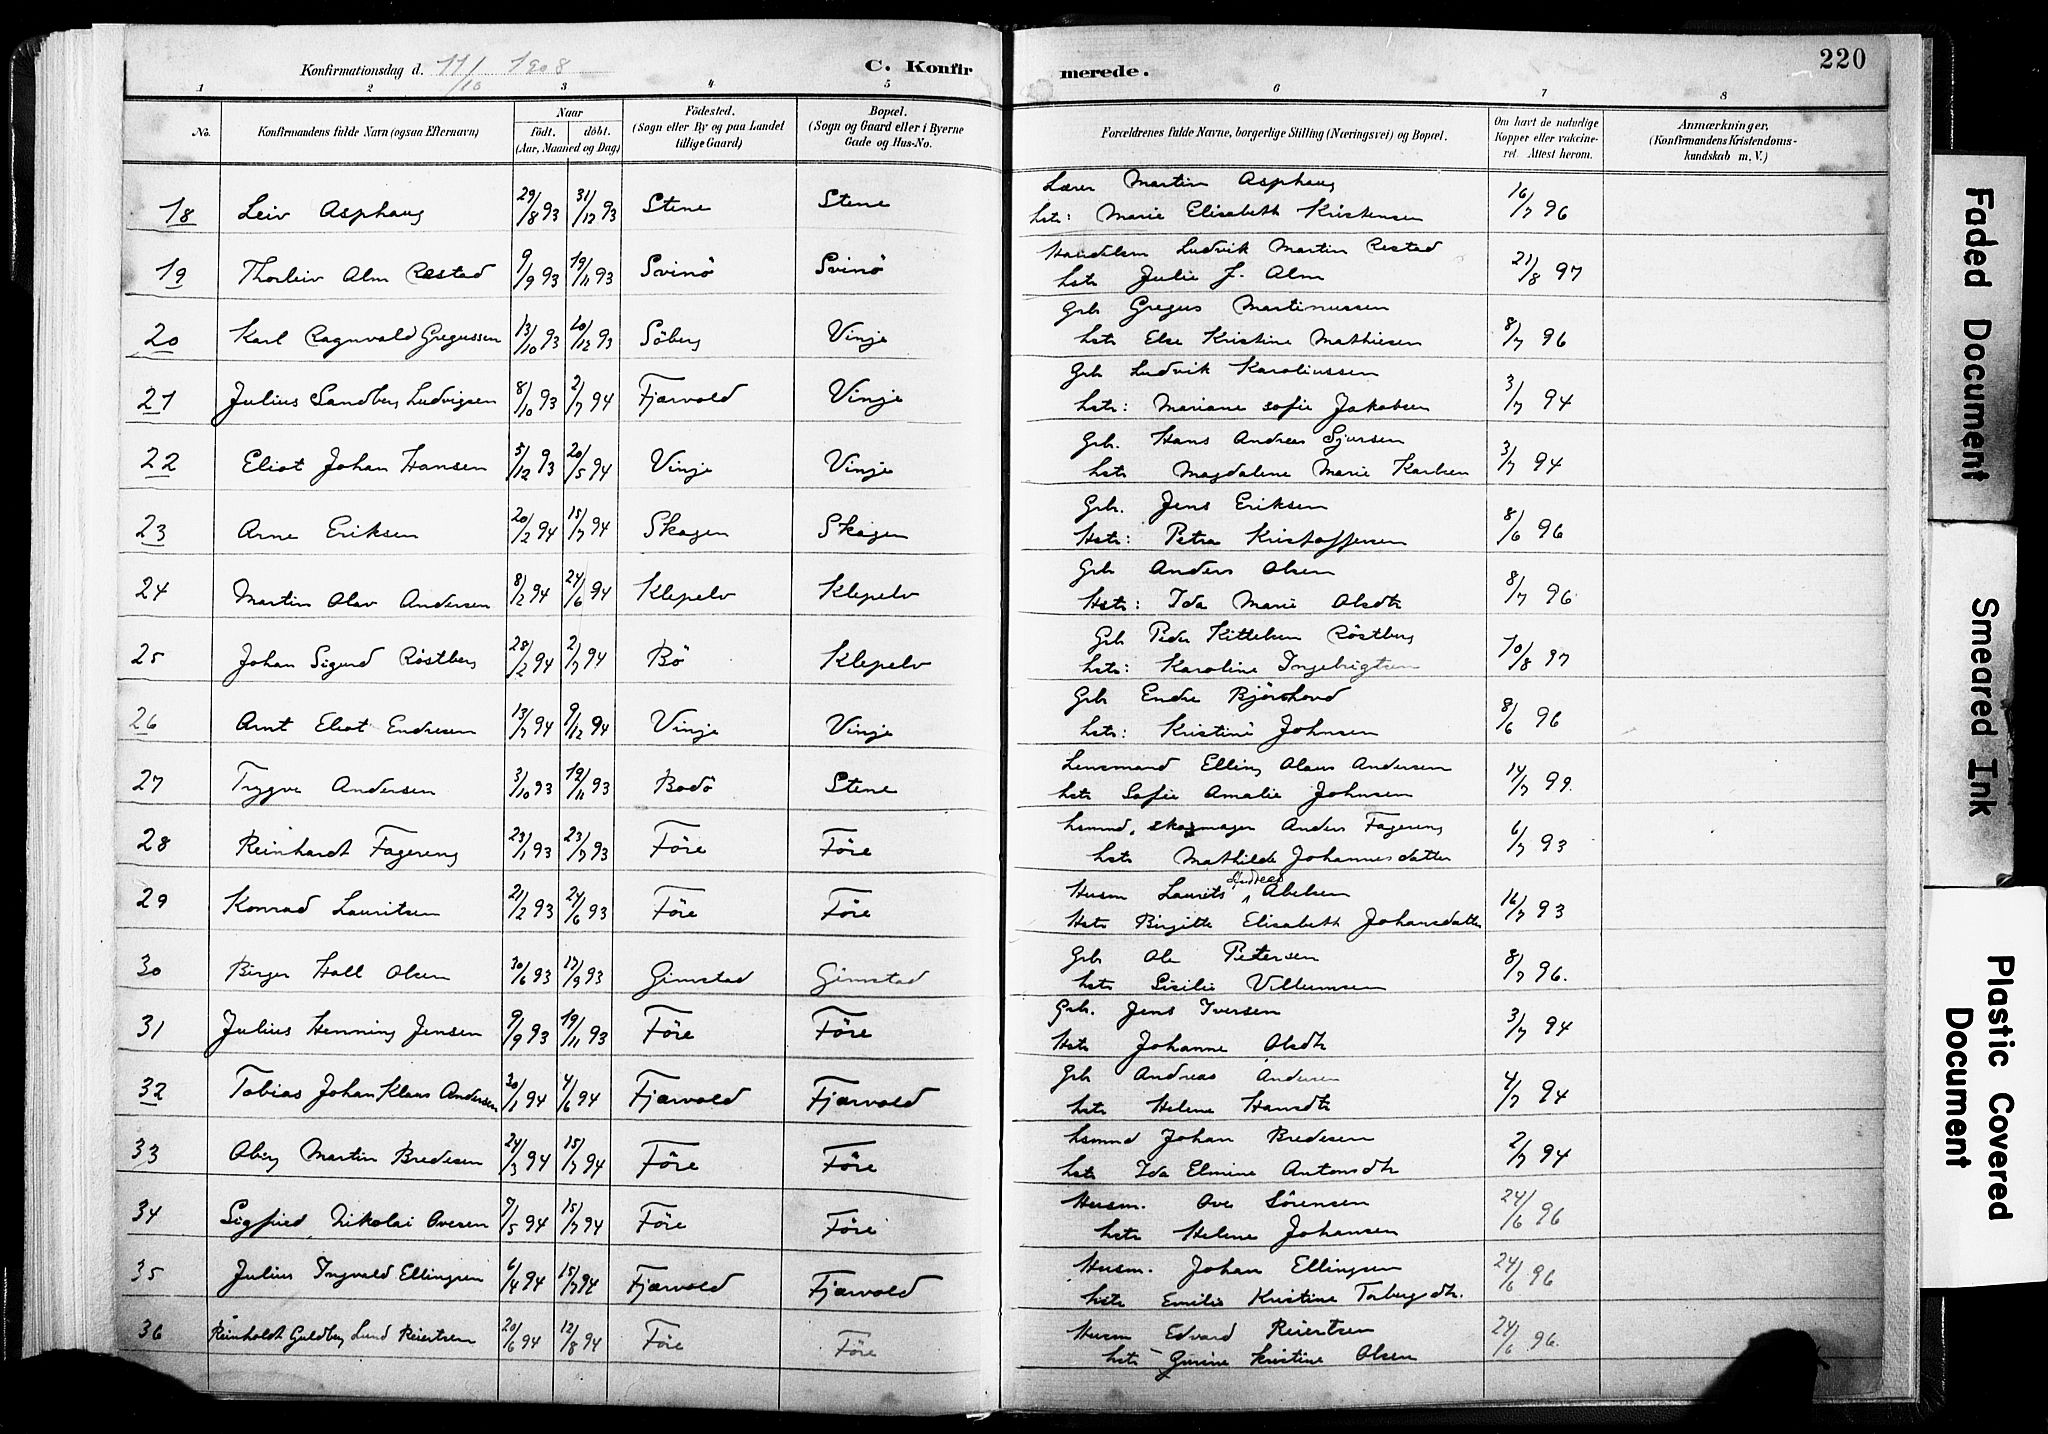 220
Konfirmationsdag d. 11/10 1908
C. Konfirmerede.
1 2 3 4 5 6 7 8
No.
Konfirmandens fulde Navn (ogsaa Efternavn)
Naar
födt. döbt.
(Aar, Maaned og Dag)
Födested.
(Sogn eller By og paa Landet
tillige Gaard)
Bopæl.
(Sogn og Gaard eller i Byerne
Gade og Hus-No.
Forældrenes fulde Navne, borgerlige Stilling (Næringsvei) og Bopæl.
Om havt de naturlige
Kopper eller vakcine-
ret. Attest herom.
Anmærkninger,
(Konfirmandens Kristendoms-
kundskab m. V.)
18 Leiv Asphaug 29/8 93 31/12 93 Stene Stene Lærer Martin Asphaug 16/7 96
hstr: Marie Elisabeth Kristensen
19 Thorleiv Alm Restad 9/9 93 19/11 93 Svinö Svinö Handelsm Ludvik Martin Restad 21/8 97
hstr Julie J. Alm
20 Karl Ragnvald Gregussen 13/10 93 20/12 93 Söberg Vinje Grb Gregus Martinussen 8/7 96
hstr Else Kristine Mathiesen
21 Julius Sandberg Ludvigsen 8/10 93 2/7 94 Fjærvold Vinje Grb Ludvik Karoliussen 3/7 94
hstr: Mariane Sofie Jakobsen
22 Eliot Johan Hansen 5/12 93 20/5 94 Vinje Vinje Grb. Hans Andreas Sjursen 3/7 94
hstr Magdalene Marie Karlsen
23 Arne Eriksen 20/2 94 15/7 94 Skagen Skagen Grb. Jens Eriksen 8/6 96
Hstr: Petra Kristoffersen
24 Martin Olav Andersen 8/2 94 24/6 94 Klepelv Klepelv Grb Anders Olsen 8/7 96
Hstr: Ida Marie Olsdtr
25 Johan Sigurd Röstberg 28/2 94 2/7 94 Bö Klepelv Grb Peder Kittelsen Röstberg 10/8 97
hstr: Karoline Ingebrigtsen
26 Arnt Eliot Endresen 13/7 94 9/12 94 Vinje Vinje Grb Endre Björshovd 8/6 96
hstr: Kristine Johnsen
27 Trygve Andersen 3/10 93 19/11 93 Bodö Stene Lensmand Elling Olaus Andersen 14/7 99.
hstr Sofie Amalie Johnsen
28 Reinhardt Fagereng 23/1 93 23/7 93 Före Före hsmnd, skomager Anders Fagereng 6/7 93
hstr Mathilde Johannesdatter
29 Konrad Lauritsen 21/2 93 24/6 93 Före Före Husm Laurits Andreas Abelsen 16/7 93
Hstr Birgitte Elisabeth Johansdatter
30 Birger Hall Olsen 30/6 93 17/9 93 Gimstad Gimstad Grb Ole Petersen 8/7 96.
hstr Sisilie Villumsen
31 Julius Henning Jensen 9/9 93 19/11 93 Före Före Grb. Jens Iversen 3/7 94
Hstr Johanne Olsdtr
32 Tobias Johan Klaus Andersen 30/1 94 4/6 94 Fjærvold Fjærvold Grb Andreas Andersen 4/7 94
hstr Helene Hansdtr
33 Martin Bredesen 24/3 94 15/7 94 Före Före hsmnd Johan Bredesen 2/7 94
hstr Ida Elmine Antonsdtr
34 Sigfried Nikolai Ovesen 7/5 94 15/7 94 Före Före Husm. Ove Sörensen 24/6 96
hstr Helene Johansen
35 Julius Ingvald Ellingsen 6/4 94 15/7 94 Fjærvold Fjærvold Husm. Johan Ellingsen 24/6 96
hstr Emilie Kristine Torbergsdtr.
36 Reinholdt Guldberg Lund Reiertsen 20/6 94 12/8 94 Före Före Husm Edvard Reiertsen 24/6 96.
hstr Gurine Kristine Olsen
Faded Document
Smeared Ink
Plastic Covered
Document